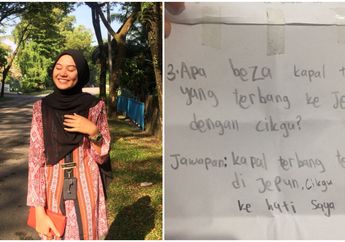 3. Apa beza kapal
yang terbang ke Je
dengan cikgu?
Jawapan: kapal terbang te
di Jepun, Cikgu
ke hati saya